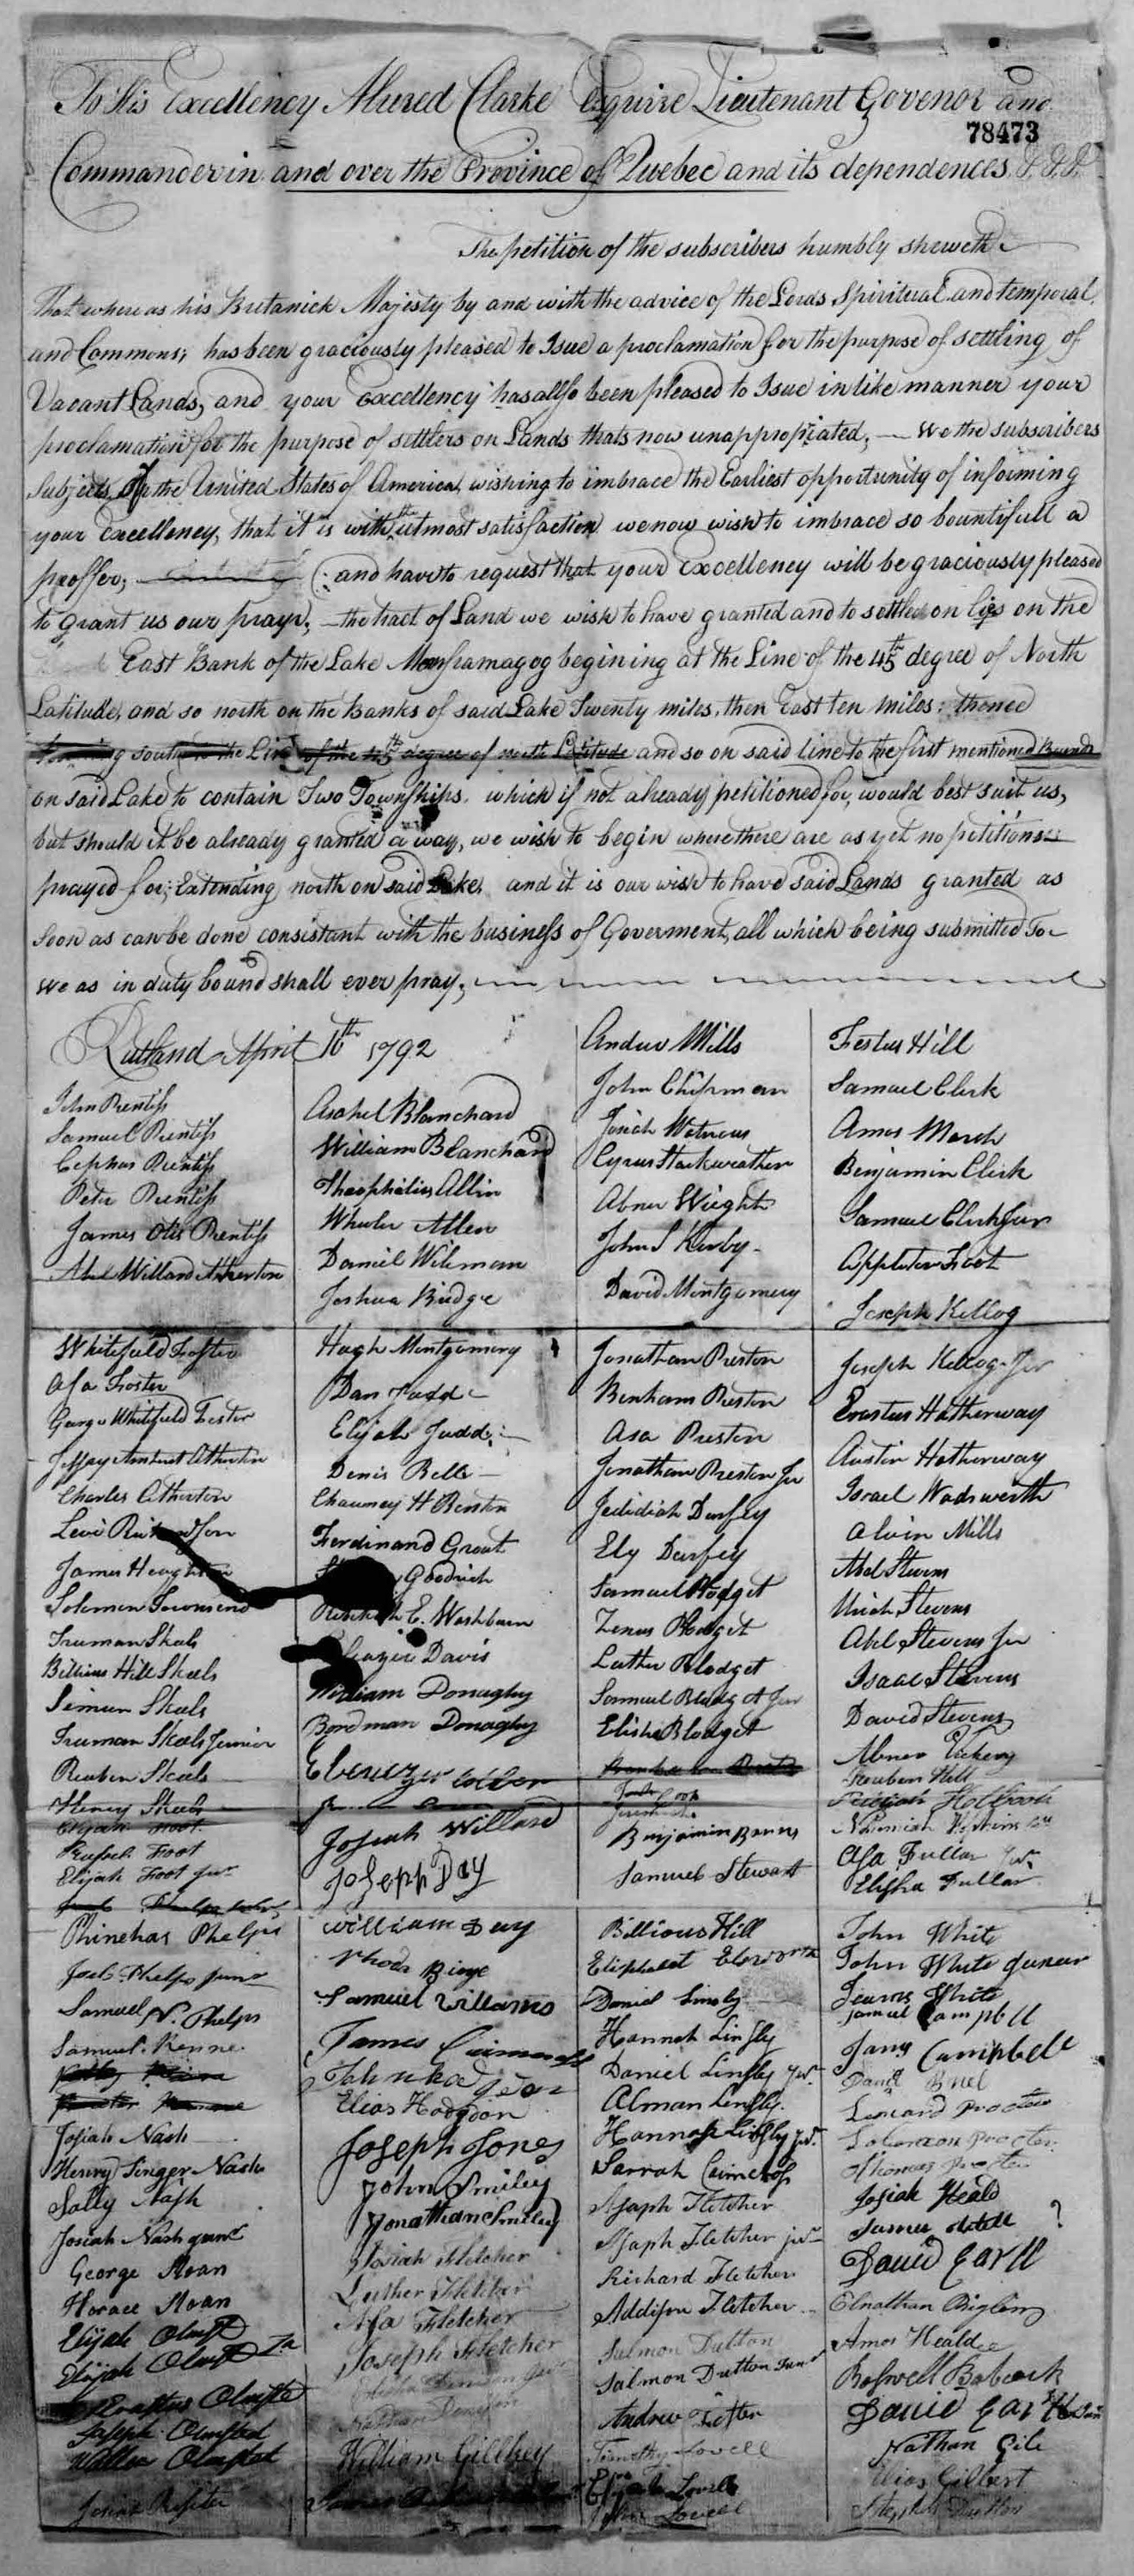 To His Excellency Alured Clarke Esquire Lieutenant Govenor and
78473
Commander in and over the Province of Quebec and its dependences
The petition of the subscribers humbly sheweth
That where as his Britanick Majisty by and with the advice of the Lords Spiritual and temporal,
and Commons; has been graciously pleased to Isue a proclamation for the purpose of settling of
Vacant Lands, and your Excellency has allso been pleased to Isue in like manner your
proclamation for the purpose of settlers on Lands thats now unappropriated; We the subscribers
Subjects of the United States of America wishing to imbrace the Earliest opportunity of informing
your Excellency, that it is with the utmost satisfaction we now wish to imbrace so bountifull a
proffer; and have to request that your Excellency will be graciously pleased
to grant us our prayr; the tract of Land we wish to have granted and to settled on lies on the
East Bank of the Lake Memframagog begining at the Line of the 45th degree of North
Latitude, and so north on the Banks of said Lake Twenty miles, then East ten miles: thence
south the Line of the 45th degree of north Latitude and so on said line to the first mentioned Bounds
on said Lake to contain Two Townships. which if not already petitioned for, would best suit us,
but should it be already granted a way, we wish to begin where there are as yet no petitions
prayed for; Extending north on said Lake, and it is our wish to have said Lands granted as
soon as can be done consistant with the business of Goverment, all which being submitted To
we as in duty bound shall ever pray;
Rutland April 16th 1792
John Prentiss
Samuel Prentiss
Cephas Prentiss
Peter Prentiss
James Otis Prentiss
Abel Willard Atherton
Whitefield Foster
Asa Froster
George Whitefield Foster
Jeffray Amherst Atherton
Charles Atherton
Levi Richardson
James Houghton
Solomon Townsend
Truman Skeels
Billious Hill Skeels
Simeon Skeels
Truman Skeels Junior
Reuben Skeels
Henry Skeels
Elijah Foot
Rufus Foot
Elijah Foot Jur
Phinehas Phelps
Joel Phelps junr
Samuel N. Phelps
Samuel Kenne
Josiah Nash
Henry Singer Nash
Sally Nash
Josiah Nash junr
George Sloan
Horace Sloan
Elijah Olmst
Elijah Olmst Jr
Erastus Olmste
Joseph Olmsted
Walter Olmsted
Asahel Blanchard
William Blanchard
Theophilus Allin
Wheeler Allen
Daniel Wileman
Joshua Bridge
Hugh Montgomery
Dan Judd
Elijah Judd
Denis Bell
Chauncy H Benton
Ferdinand Grout
Goodrich
E. Washburn
Davis
William Donaghy
Bordman Donaghy
Josiah Willard
Joseph Day
William Day
Rhoda Binge
Samuel Willams
James
Elias Hodgdon
Joseph Jones
John Smiley
Jonathan Smiley
Josiah Fletcher
Luther Fletcher
Asa Fletcher
Joseph Fletcher
William Gillbey
Andrew Mills
John Chipman
Josiah Watrous
Cyrus Starkweather
Abner Wright
John S Kirby
David Montgomery
Jonathan Preston
Benham Preston
Asa Preston
Jonathan Preston Jr
Jedidiah Durfey
Ely Durfey
Samuel Blodget
Zenus Blodget
Luther Blodget
Samuel Blodget Jur
Elisha Blodget
Benjamin Barns
Samuel Stewart
Billious Hill
Eliphalet Elsworth
Daniel Linsly
Hannah Linsly
Daniel Linsly Jur
Alman Linsly
Hannah Linsly Jur
Sarrah
Asaph Fletcher
Asaph Fletcher jur
Richard Fletcher
Addison Fletcher
Salmon Dutton
Salmon Dutton Junr
Andrew Foster
Timothy Lovell
Elijah Lovell
John Lovell
Festus Hill
Samuel Clerk
Amos Marsh
Benjamin Clerk
Samuel Clerk Jur
Appleton Foot
Joseph Kellog
Joseph Kellog Jur
Erastus Hatherway
Austin Hatherway
Israel Wadsworth
Alvin Mills
Abel Stevens
Uriah Stevens
Abel Stevens Jur
Isaac Stevens
David Stevens
Abner Vickery
Reuben Hill
Holbook
Asa Fullar Jur
Elisha Fullar
John White
John White Juneur
Jeams White
Samuel Campbell
Jany Campbelle
David Buel
Leonard Proctor
Solomon Procter
Thomas Procter
Josiah Heald
?
David Earll
Elnathan
Amos Heald
Boswell Babcock
David Earll
Nathan Gile
Elias Gilbert
Stephen Dutton